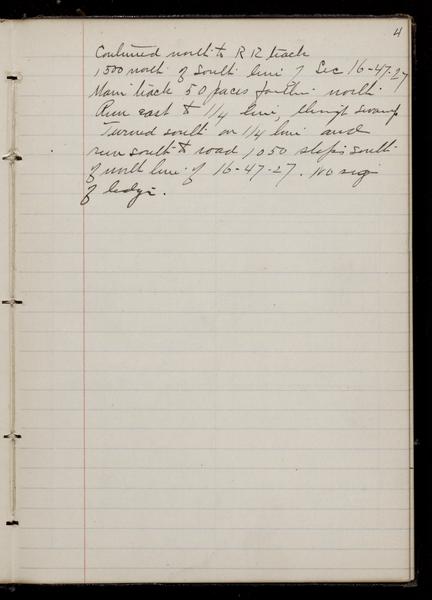 4
Continued north to R R track
1500 north of South line of Sec 16-47-27
Main track 50 paces farther north.
Run east to 1/4 line, through swamp
Turned south on 1/4 line and
run south to road 1050 steps south
of north line of 16-47-27. No sign
of ledge.